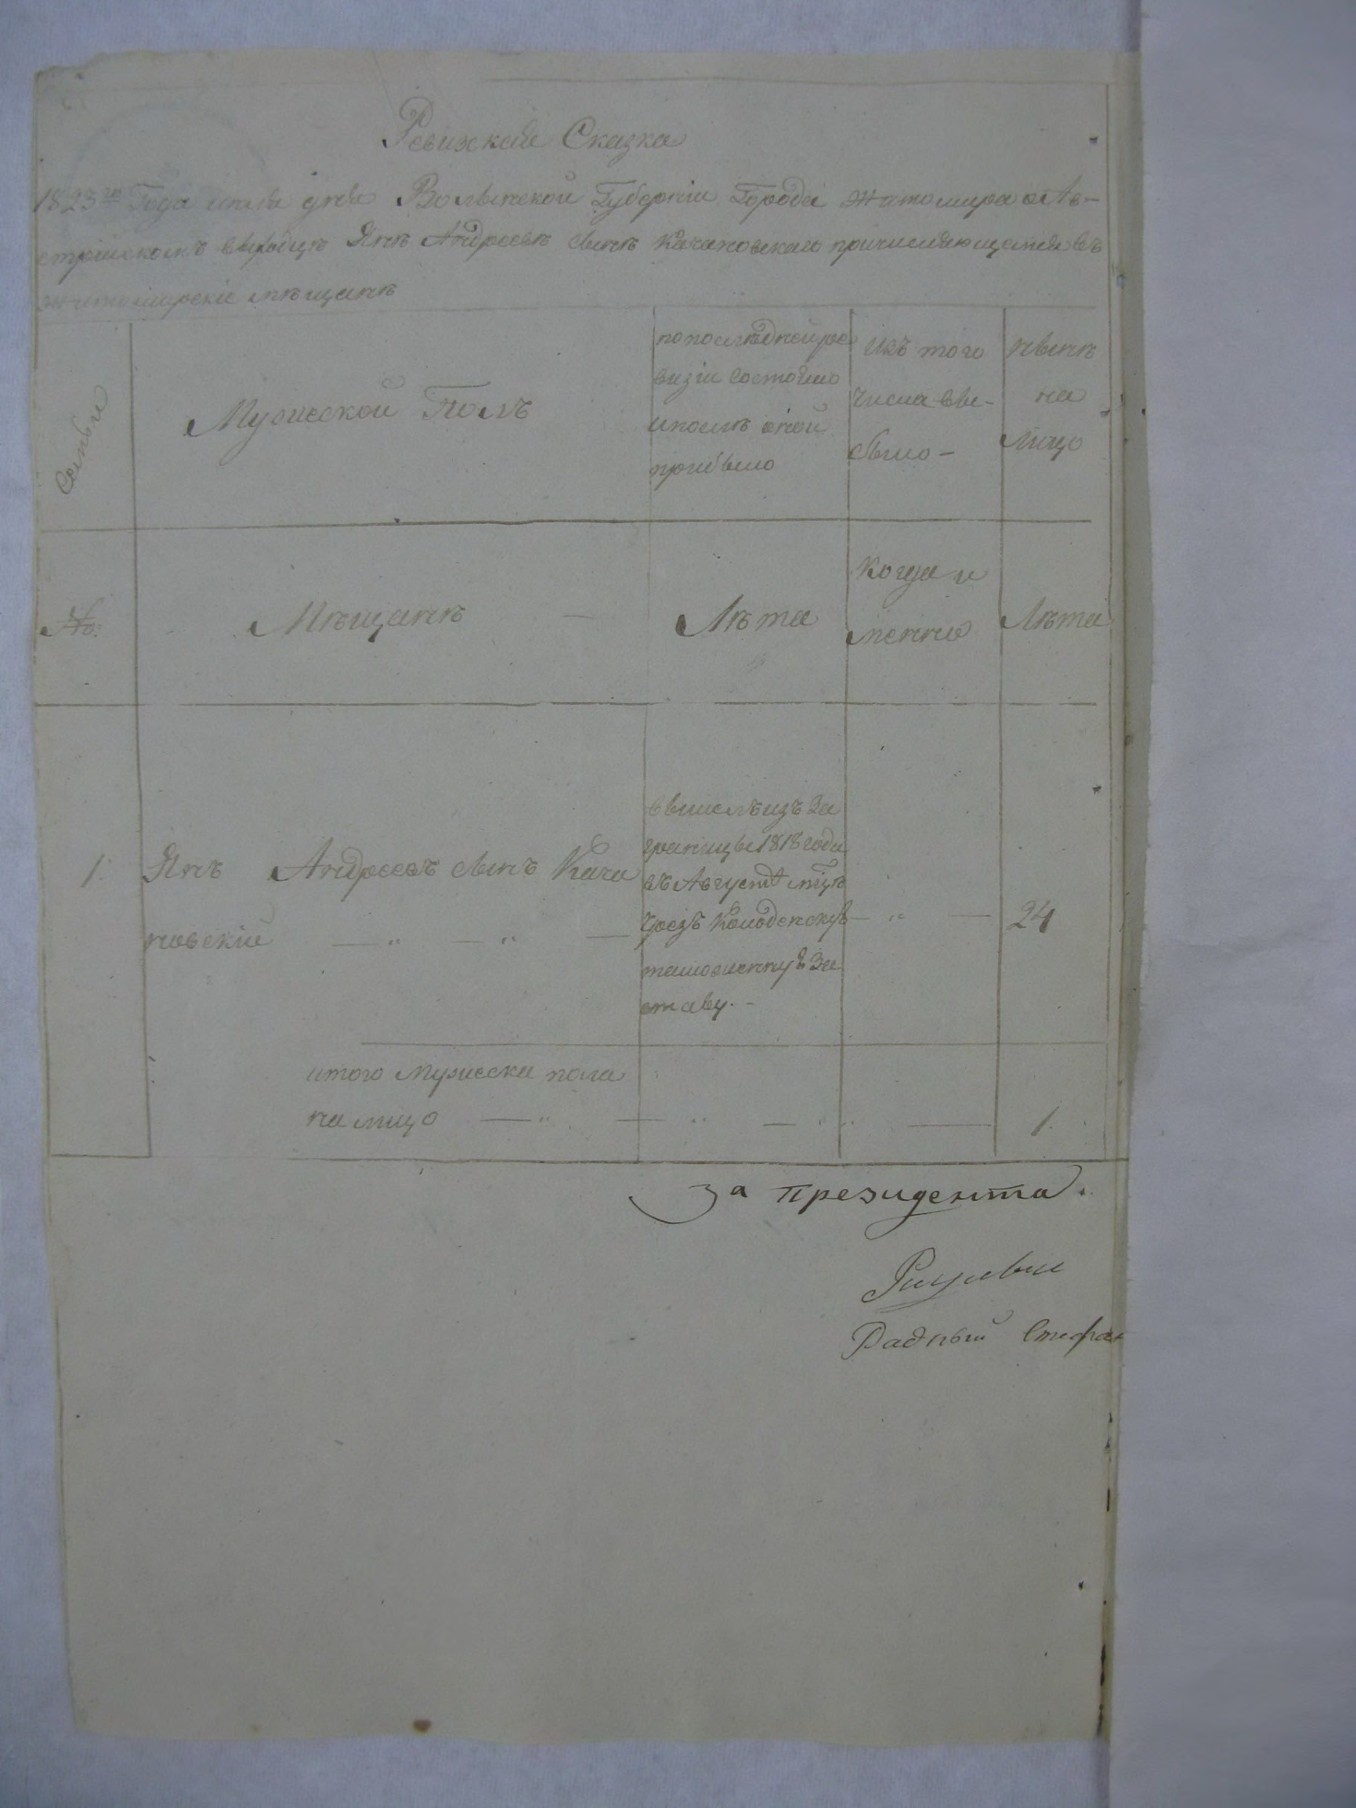 Ревижская Сказка
1823го Года июля дня Волынской Губернии Города Житомира о Ав-
стрiйскомъ выходцѣ Янѣ Андреевѣ сынѣ Качановскомъ причисляющемся въ
житомирскiе мѣщанѣ
Семьи
Мужеской Полъ
по последней ре
визiи состояло
и послѣ оной
прибыло
Изъ того
числа вы-
было -
нынѣ
на
лицо
No:
Мѣщанѣ -
Лѣта
Когда и
менно
Лѣта
1. Янъ Андреевъ сынъ Кача
новскiй — „ — „ —
вышелъ изъ За
границы 1818 года
въ Августѣ мцѣ
чрезъ
таможенную За
ставу. -
— „ —
24
итого мужеска пола
на лицо — „ — „ — „ — 1.
За президента.
Радный Стефан